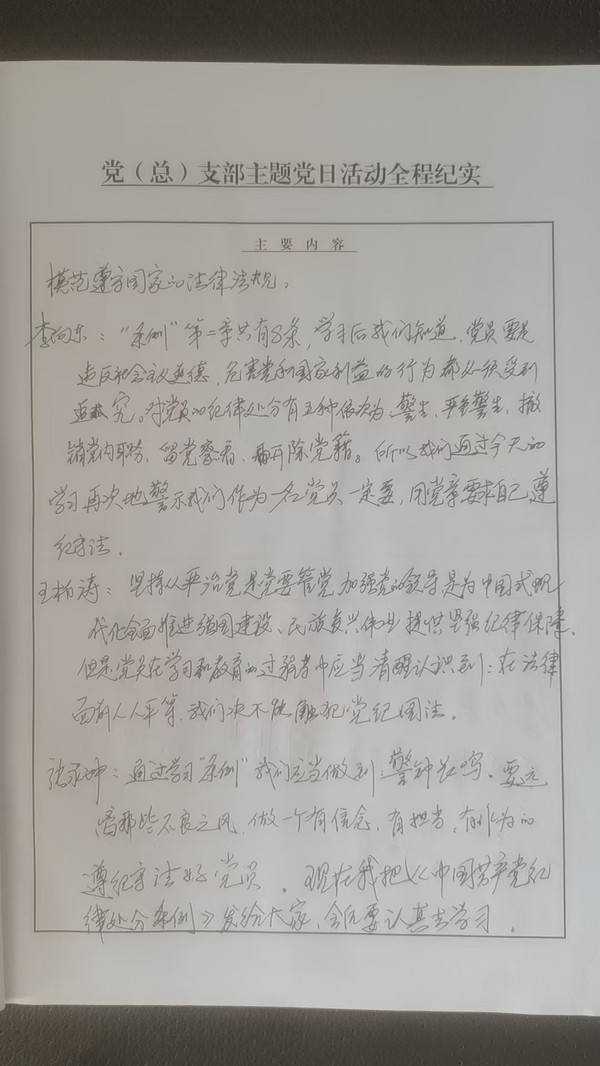 党（总）支部主题党日活动全程纪实
主要内容
模范遵守国家的法律法规。
李向东："条例"第二章共有8条，学习后我们知道，党员要是
违反社会主义道德，危害党和国家利益的行为都必须受到
追究。对党员的纪律处分有五种依次为：警告，严重警告，撤
销党内职务，留党察看，开除党籍。所以我们通过今天的
学习再次地警示我们作为一名党员一定要，用党章要求自己，遵
纪守法。
王柏涛：坚持从严治党是党要管党加强党的领导是为中国式现
代化全面推进强国建设、民族复兴伟业提供坚强纪律保障。
但是党员在学习和教育的过程中应当清醒认识到：在法律
面前人人平等，我们决不能触犯党纪国法。
张永坤：通过学习"条例"我们应当做到警钟长鸣。要远
离那些不良之风，做一个有信念，有担当，有作为的
遵纪守法好党员。现在我把《中国共产党纪
律处分条例》发给大家，会后要认真去学习。